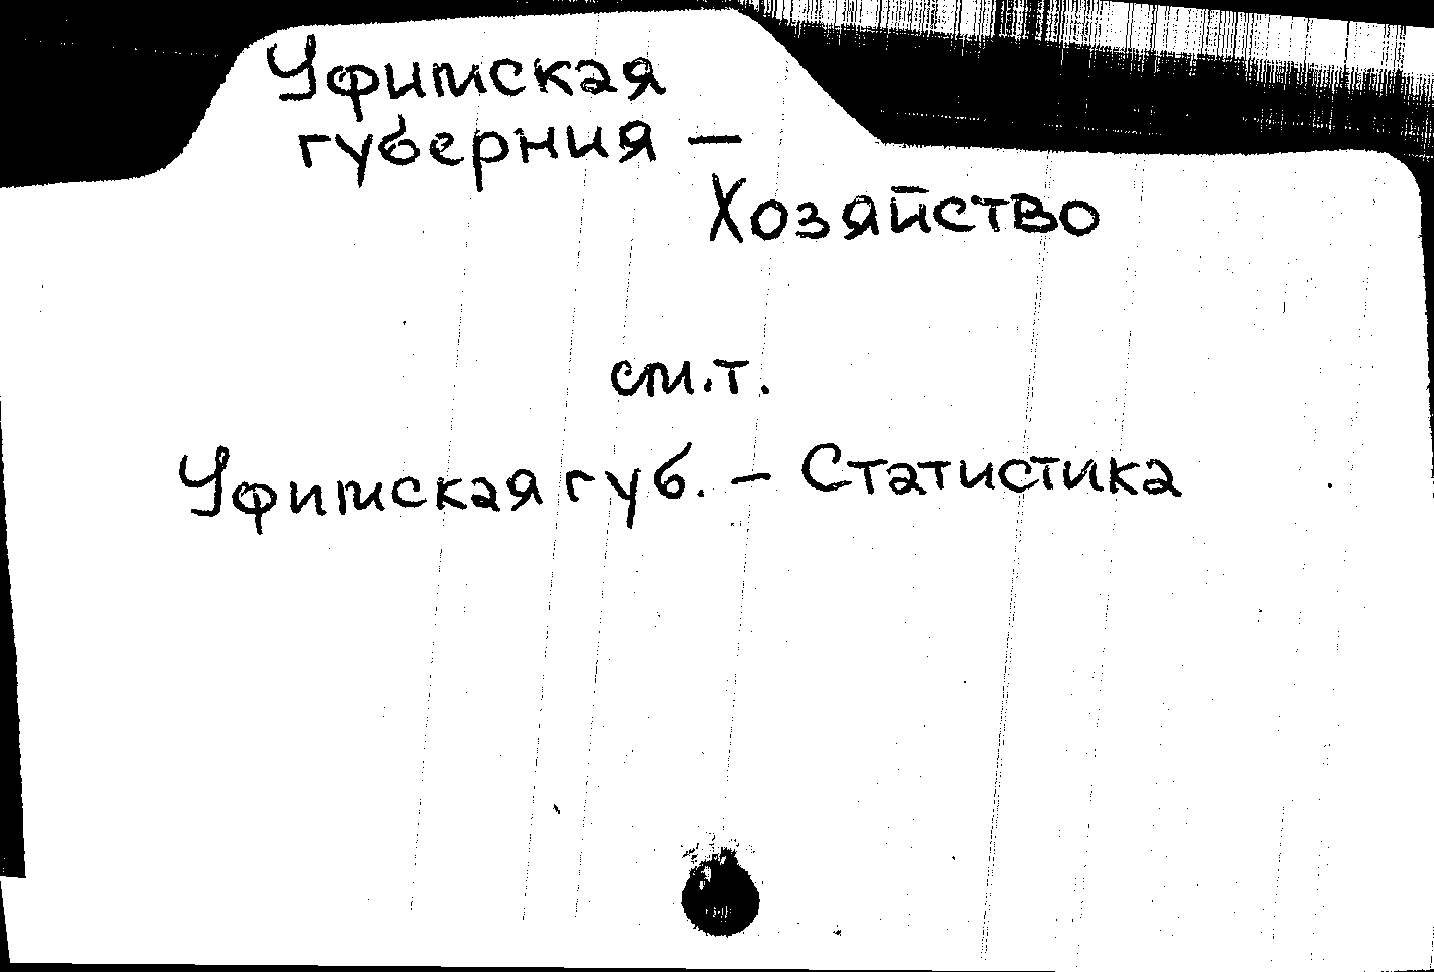 Уфимская
губерния –
Хозяйство
см.т.
Уфимская губ. – Статистика